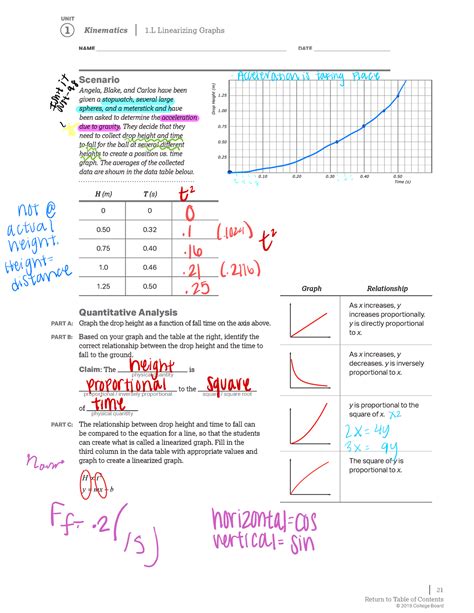 UNIT
1 Kinematics | 1.L Linearizing Graphs
NAME
DATE
Scenario
Angela, Blake, and Carlos have been
given a stopwatch, several large
spheres, and a meterstick and have
been asked to determine the acceleration
due to gravity. They decide that they
need to collect drop height and time
to fall for the ball at several different
heights to create a position vs. time
graph. The averages of the collected
data are shown in the data table below.
Acceleration is taking place
Drop Height (m)
1.25
1.00
0.75
0.50
0.25
0.10 0.20 0.30 0.40 0.50
Time (s)
not @
actual
height.
Height=
distance
H (m) T (s) t²
0 0 0
0.50 0.32 .1 (.1024) t²
0.75 0.40 .16
1.0 0.46 .21 (.2116)
1.25 0.50 .25
Quantitative Analysis
PART A: Graph the drop height as a function of fall time on the axis above.
PART B: Based on your graph and the table at the right, identify the
correct relationship between the drop height and the time to
fall to the ground.
Claim: The height is
physical quantity
proportional to the square
proportional / inversely proportional square / square root
of time
physical quantity
PART C: The relationship between drop height and time to fall can
be compared to the equation for a line, so that the students
can create what is called a linearized graph. Fill in the
third column in the data table with appropriate values and
graph to create a linearized graph.
y = mx + b
Graph Relationship
As x increases, y
increases proportionally.
y is directly proportional
to x.
As x increases, y
decreases. y is inversely
proportional to x.
y is proportional to the
square of x. x2
2x = 4y
3x = 9y
The square of y is
proportional to x.
Ff= .2(
/s)
horizontal=cos
vertical= sin
21
Return to Table of Contents
© 2019 College Board